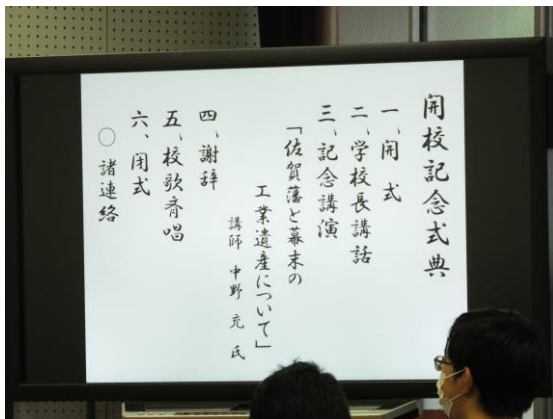 開校記念式典
一、開式
二、学校長講話
三、記念講演
「佐賀藩と幕末の
工業遺産について」
講師 中野 充 氏
四、謝辞
五、校歌斉唱
六、閉式
○ 諸連絡